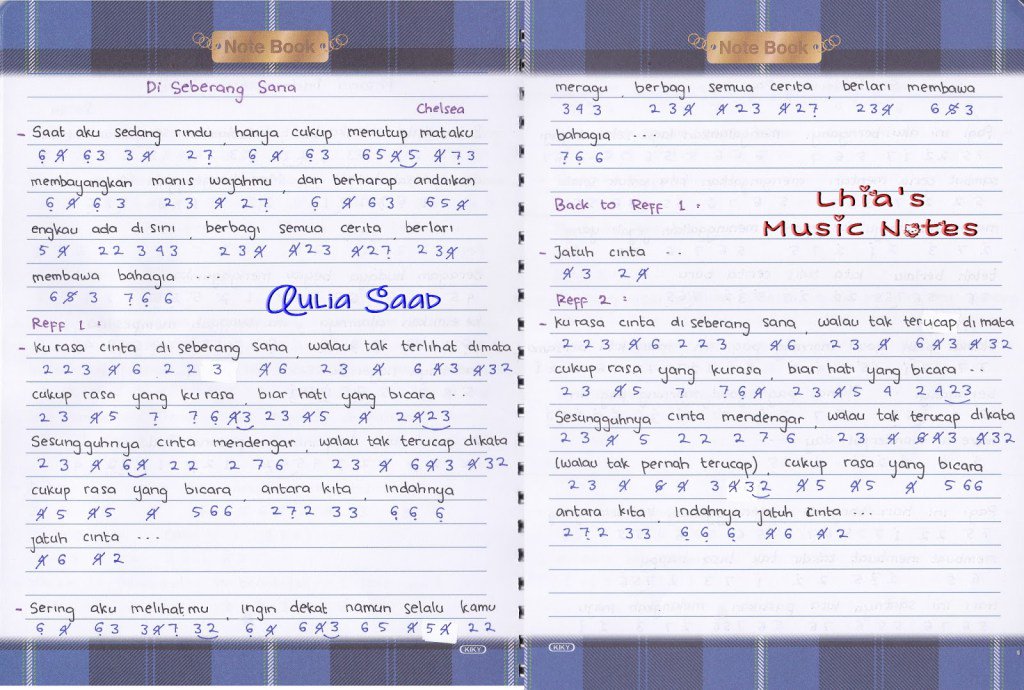 Note Book
Di Seberang Sana
Chelsea
- Saat aku sedang rindu, hanya cukup menutup mataku
6̣ 4̸ 6̣3 34̸ 27̣ 6̣ 4̸ 6̣3 654̸5 4̸7̣3
membayangkan manis wajahmu, dan berharap andaikan
6̣ 4̸ 6̣ 3 2 3 4̸ 27̣ 6̣ 4̸ 6 3 6 5 4̸
engkau ada di sini, berbagi semua cerita, berlari
5 4̸ 22 343 2 3 4̸ 4̸ 2 3 4̸27̣ 2 3 4̸
membawa bahagia ...
6 5̸ 3 7̣ 6̣ 6
Reff 1 :
- ku rasa cinta di seberang sana, walau tak terlihat dimata
2 2 3 4̸ 6 2 2 3 4̸ 6 2 3 4̸ 6 4̸ 3 4̸32
cukup rasa yang ku rasa, biar hati yang bicara ..
2 3 4̸5 7 7 6 4̸3 2 3 4̸5 4̸ 2 4̸23
Sesungguhnya cinta mendengar, walau tak terucap dikata
2 3 4̸ 64̸ 2 2 2 7 6 2 3 4̸ 6 4̸ 3 4̸32
cukup rasa yang bicara, antara kita, indahnya
4̸ 5 4̸5 4̸ 5 6 6 27̣2 3 3 6̣ 6̣ 6̣
jatuh cinta ...
4̸ 6 4̸ 2
- Sering aku melihatmu, ingin dekat namun selalu kamu
6̣ 4̸ 6̣3 34̸7̣ 32 6̣ 4̸ 6̣4̸3 65 4̸54̸ 22
KIKY
Qulia Saad
Note Book
meragu, berbagi semua cerita, berlari membawa
3 4 3 2 3 4̸ 4̸ 2 3 4̸27̣ 2 3 4̸ 6 5̸ 3
bahagia ...
7̣ 6̣ 6
Back to Reff 1 :
Lhia's
Music Notes
- Jatuh cinta ..
4̸ 3 2 4̸
Reff 2 :
- ku rasa cinta di seberang sana, walau tak terucap di mata
2 2 3 4̸ 6 2 2 3 4̸ 6 2 3 4̸ 6 4̸ 3 4̸32
cukup rasa yang kurasa, biar hati yang bicara ...
2 3 4̸5 7 7 6 4̸ 2 3 4̸5 4 2 423
Sesungguhnya cinta mendengar, walau tak terucap dikata
2 3 4̸ 5 2 2 2 7 6 2 3 4̸ 6 4̸ 3 4̸32
(walau tak pernah terucap), cukup rasa yang bicara
2 3 4̸ 6̸ 4̸ 3 4̸32 4̸5 4̸5 4̸ 5 6 6
antara kita, indahnya jatuh cinta ...
27̣2 3 3 6̣ 6̣ 6̣ 4̸6 4̸ 2
KIKY